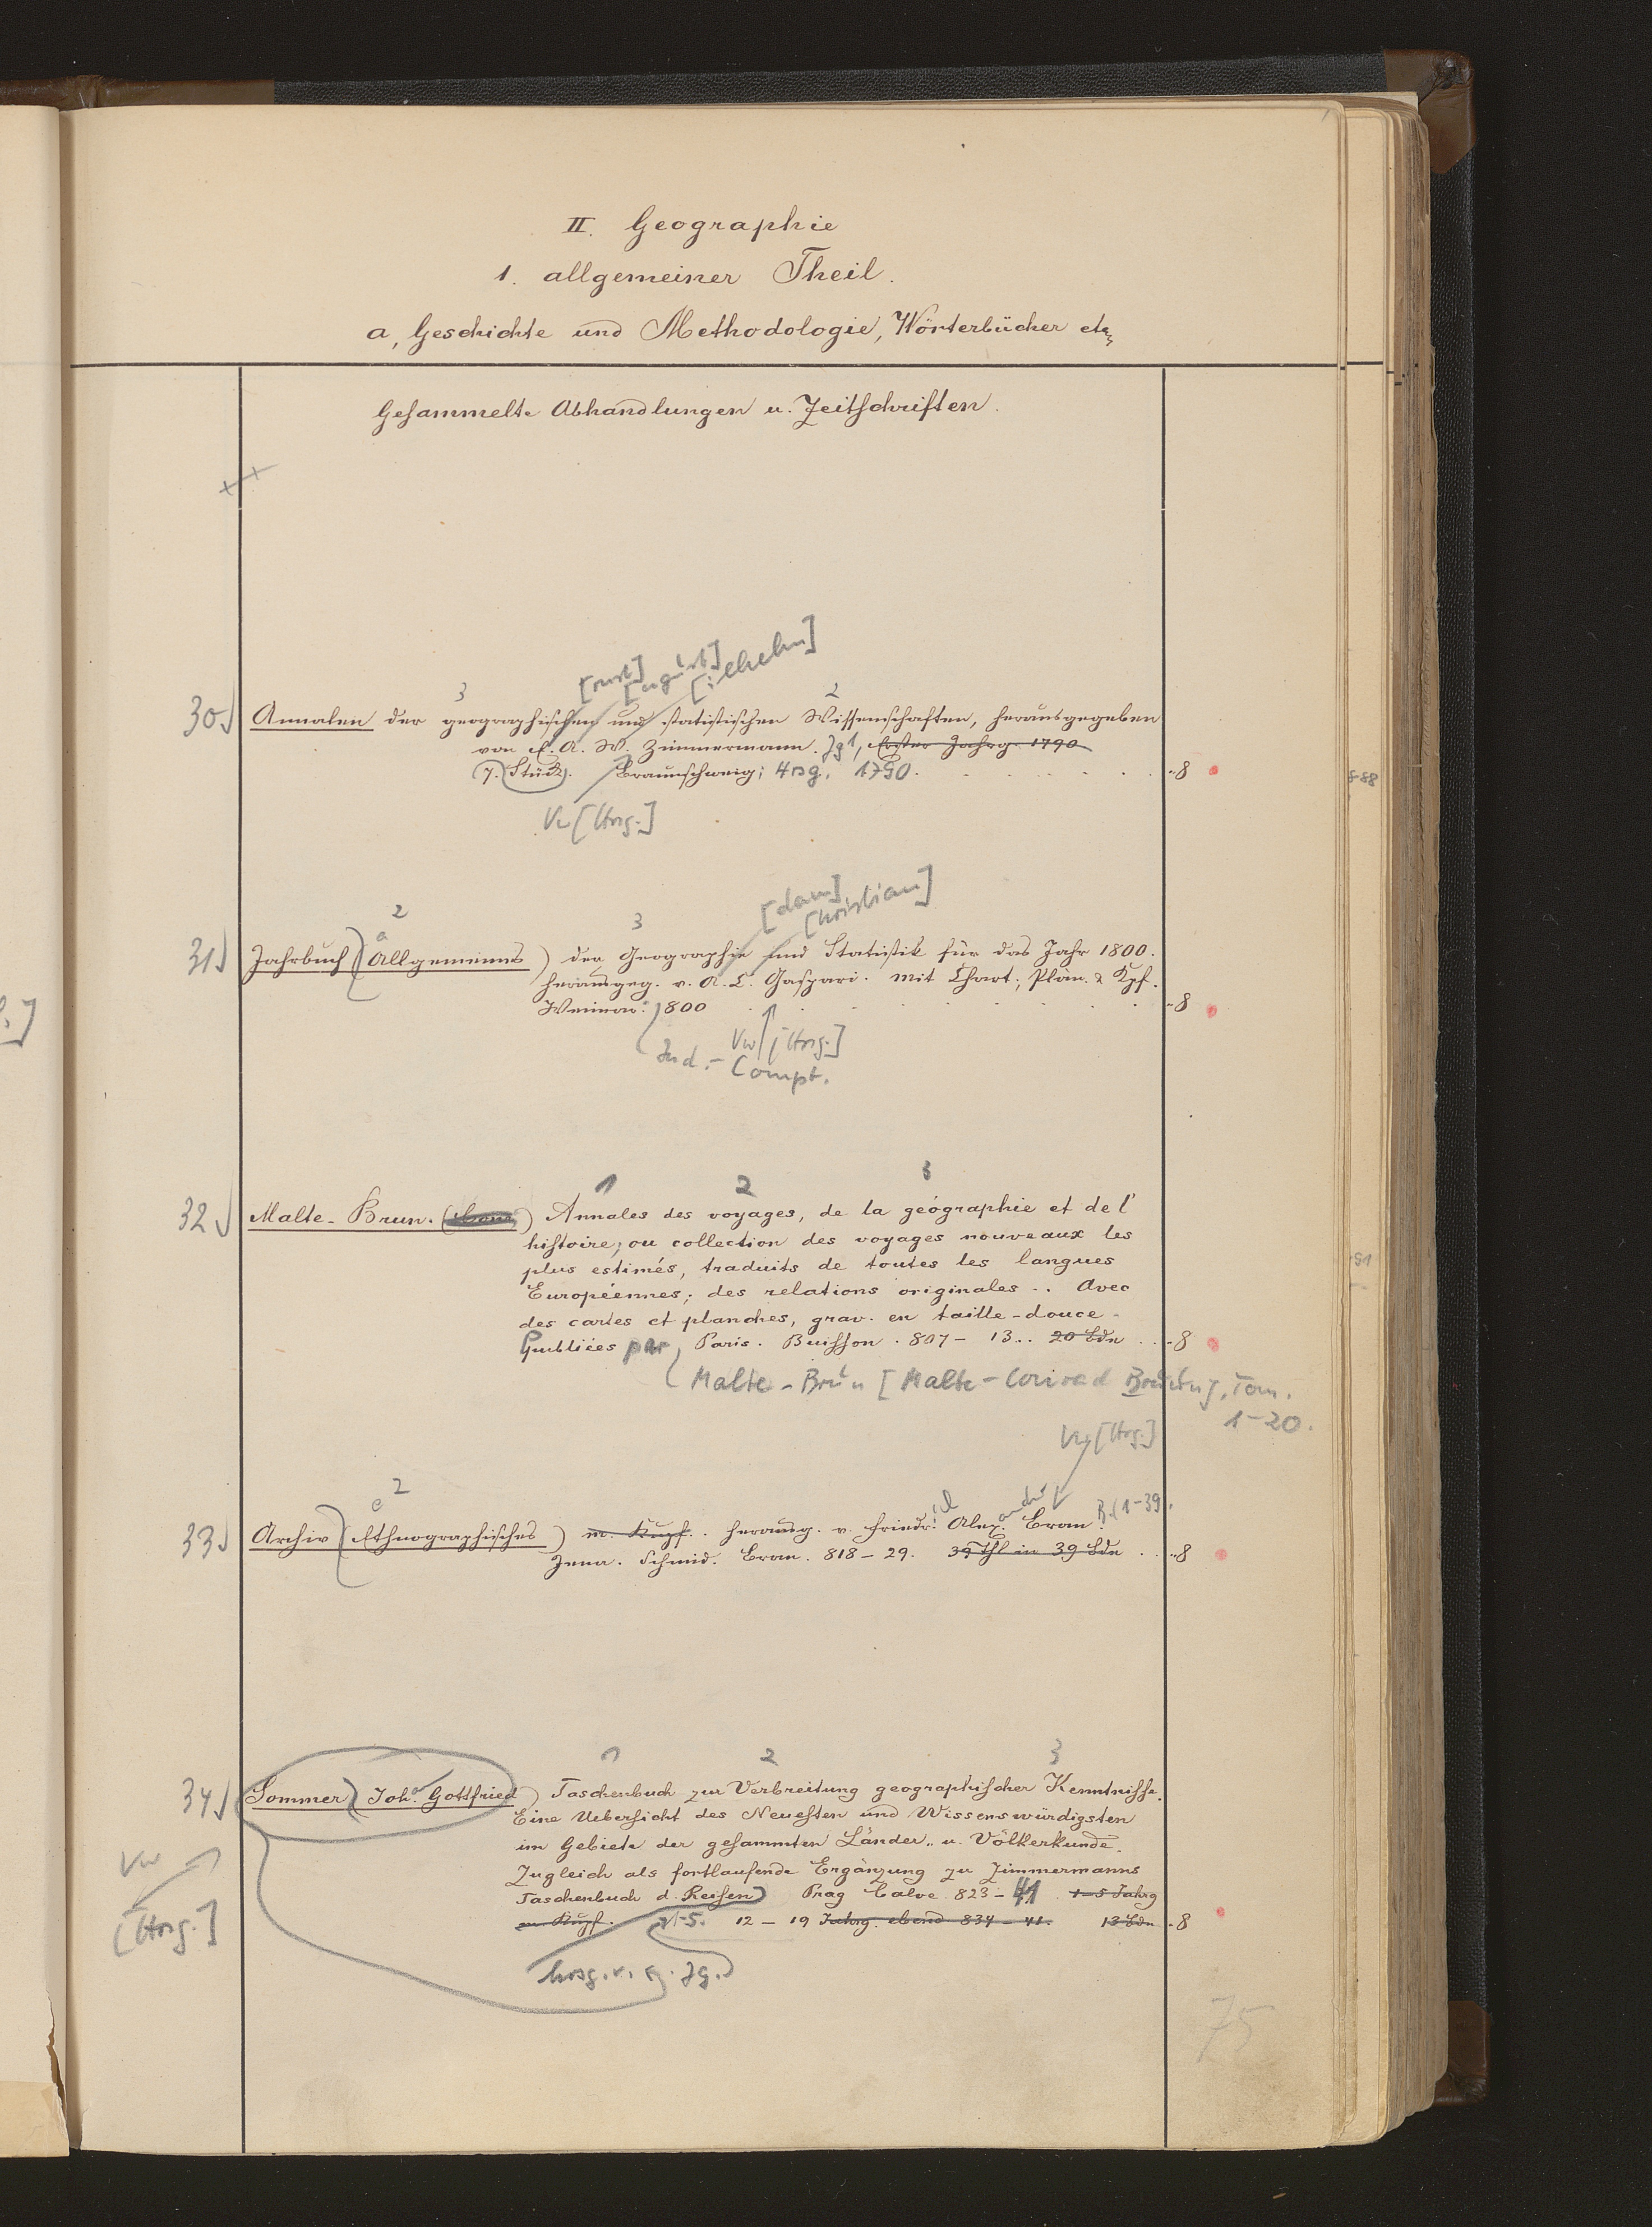 II. Geographie
1. allgemeiner Theil.
a, Geschichte und Methodologie, Wörterbücher etc,
Gesammelte Abhandlungen u. Zeitschriften.
[rnst] [ugust] [ilhelm]
3 2
30 Annalen der geographischen und statistischen Wissenschaften, herausgegeben
von E. A. W. Zimmermann. Jg 1, Erster Jahrg. 1790
(7. Stück). Braunschweig; Hrsg. 1790. 8
Vw [Hrsg.]
[dam] [hristian]
2 3
31 Jahrbuch (Allgemeines) der Geographie und Statistik für das Jahr 1800.
herausgeg. v. A. C. Gaspari. mit Chart; Plan. & Kpf.
Weimar. 1800 8
Vw [Hrsg.]
Ind.-Compt.
1 2 3
32 Malte-Brun. Annales des voyages, de la geógraphie et de l'
histoire; ou collection des voyages nouveaux les
plus estimés, traduits de toutes les langues
Européennes; des relations originales .. Avec
des cartes et planches, grav. en taille-douce.
Publiées par Paris. Buisson. 807-13.. 20 Bde 8
Malte-Brun [Malte-Conrad Bruun], Tom.
1-20.
Vw [Hrsg.]
2
33 Archiv (Ethnographisches) m. Kupf. herausg. v. Friedr. Alex. Bran. B. (1-39.
Jena. Schmid. Bran. 818-29. 39 Thl in 39 Bde 8
1 2 3
34 Sommer) Joh. Gottfried) Taschenbuch zur Verbreitung geographischer Kenntnisse.
Eine Uebersicht des Neuesten und Wissenswürdigsten
im Gebiete der gesammten Länder- u. Völkerkunde.
Zugleich als fortlaufende Ergänzung zu Zimmermanns
Taschenbuch d. Reisen) Prag Calve. 823-41. 1-5 Jahrg
m. Kupf. 1-5. 12-19 Jahrg. ebend 834-41. 13 Bde 8
Vw
[Hrsg.]
hrsg. v. Jg.
75